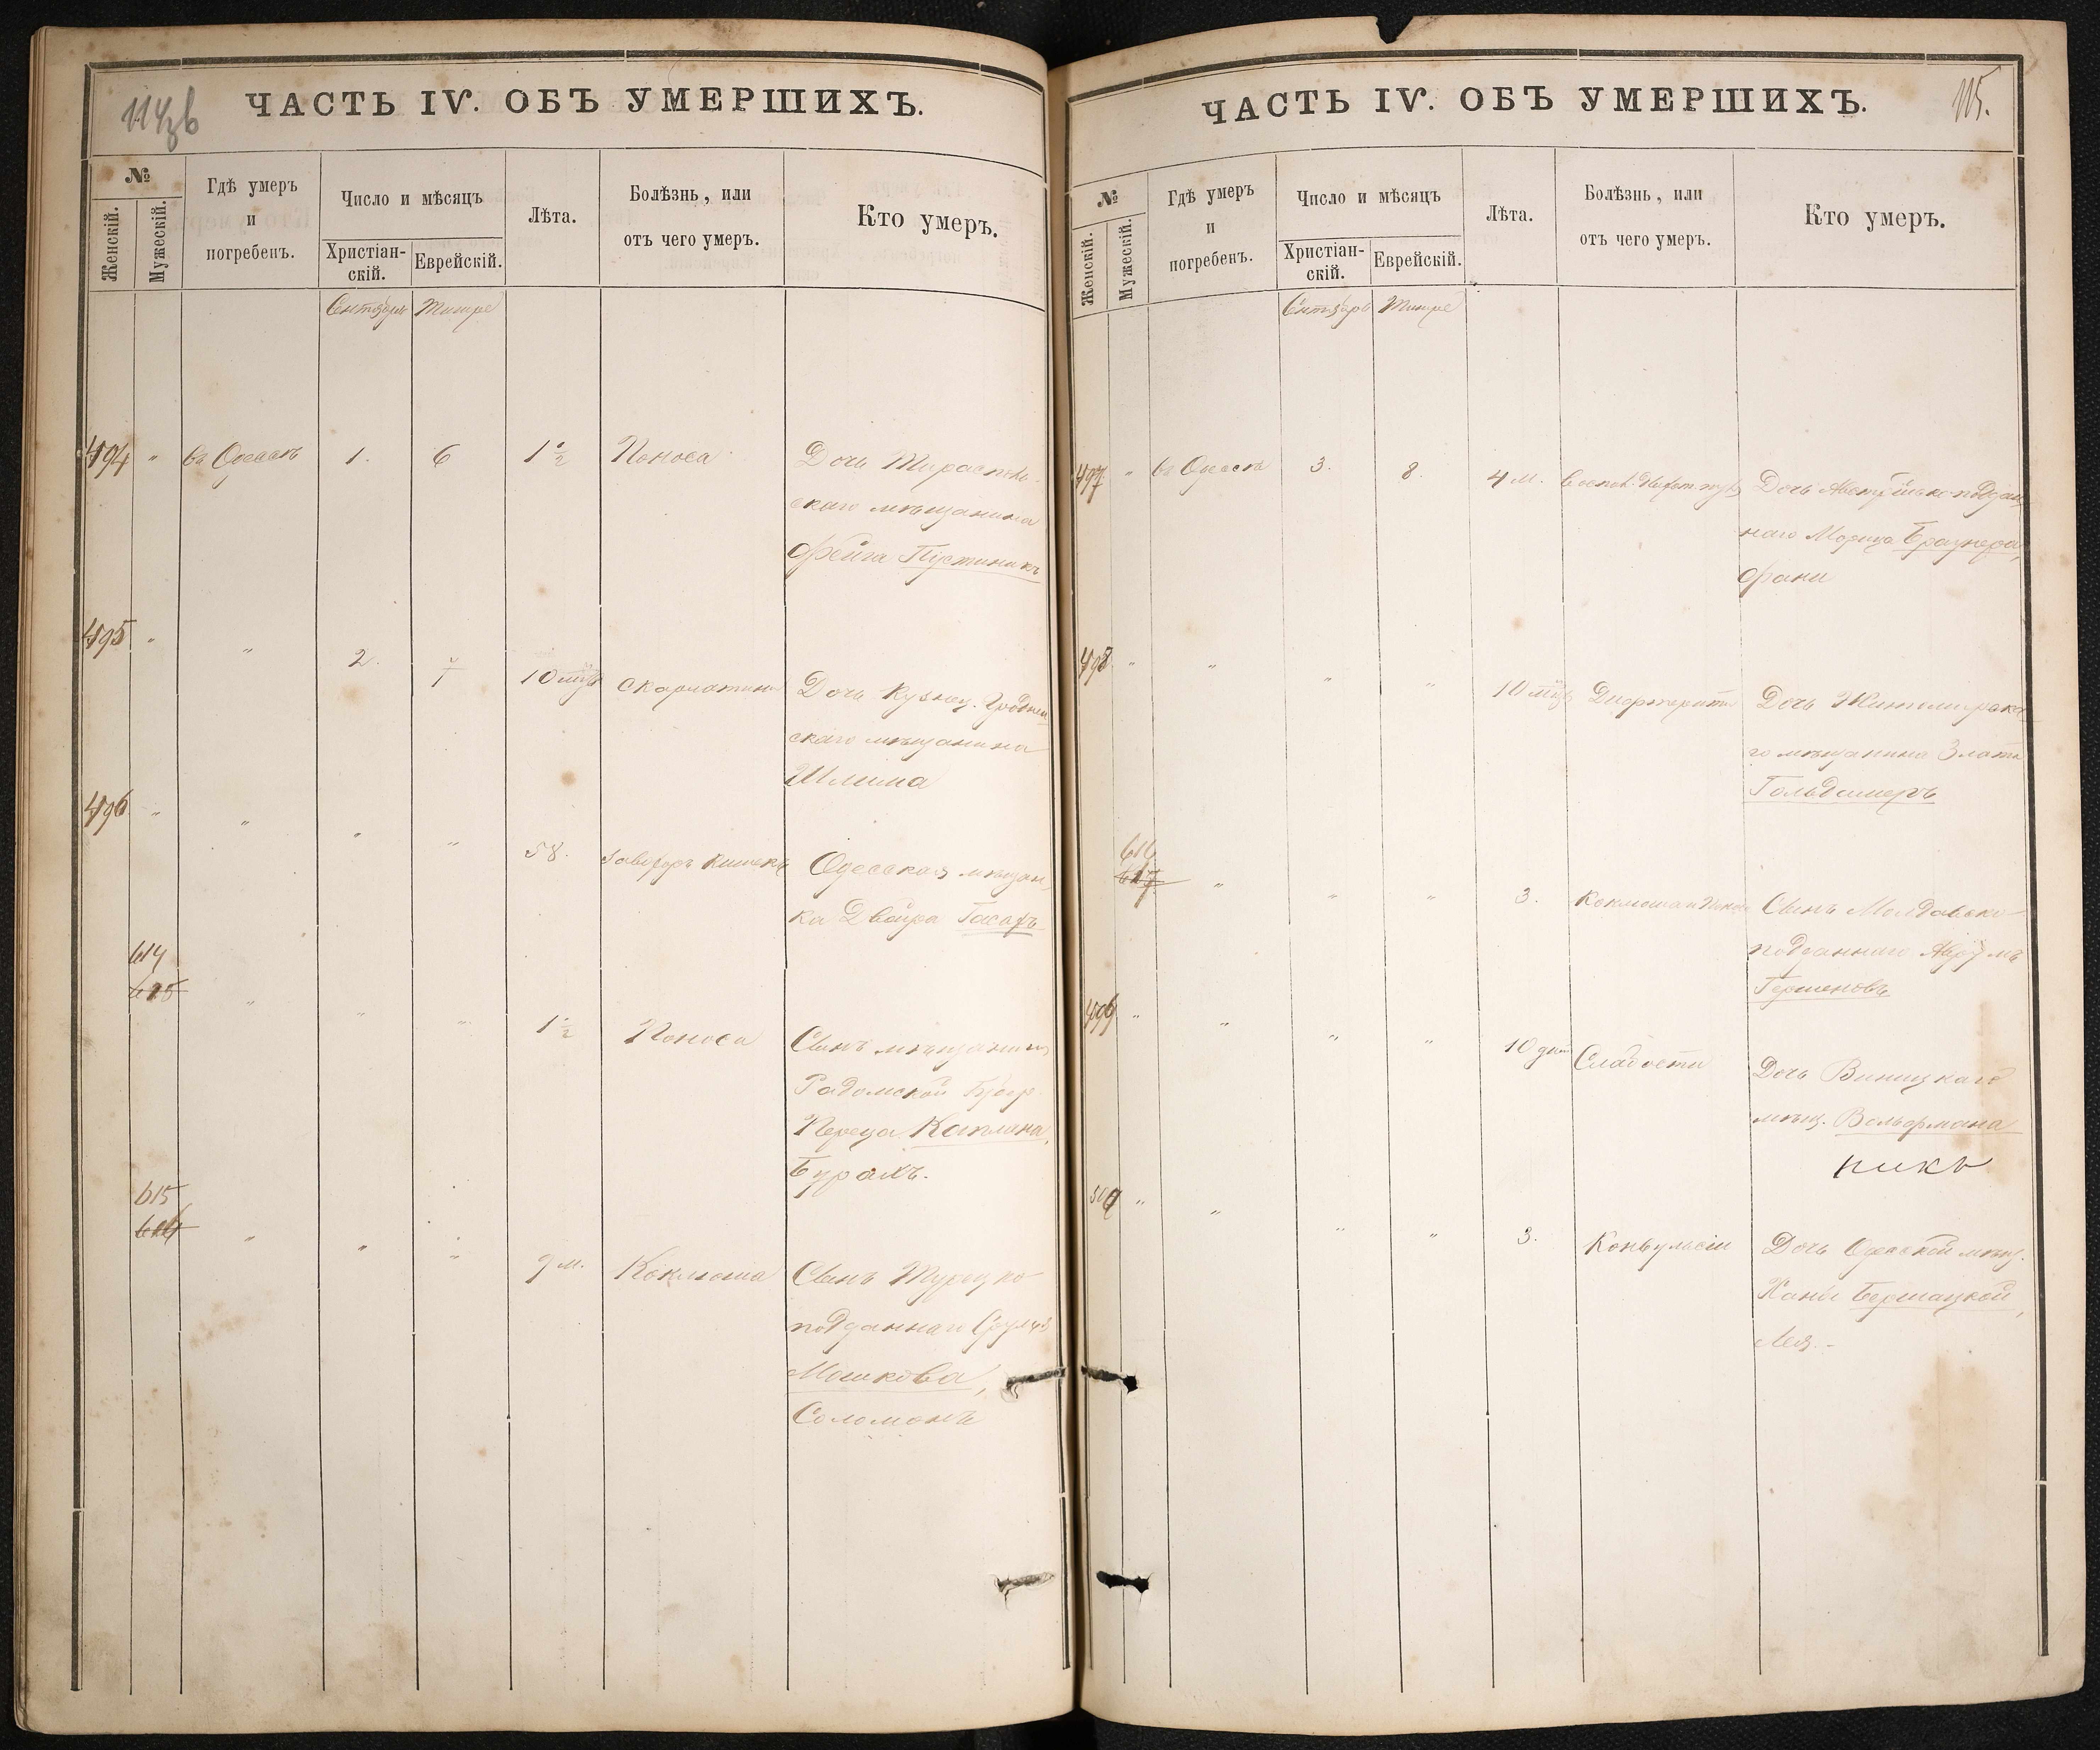 114зв
ЧАСТЬ IV. ОБЪ УМЕРШИХЪ.
№
Женскій.
Мужескій.
Гдѣ умеръ
и
погребенъ.
Число и мѣсяцъ
Христіан-
скій.
Еврейскій.
Лѣта.
Болѣзнь, или
отъ чего умеръ.
Кто умеръ.
Сентябрь Тишре
494 " въ Одессѣ 1. 6 1 1/2 Поноса
Дочь Тираспль-
скаго мѣщанина
Фейга Пустиникъ
495 " " 2. 7 10 мцъ Скарлатина
Дочь Кузнец.
скаго мѣщанина
Шлима
496 " " " " 58. Заворъ Кишекъ
Одесская мѣщан
ка Двойра
614
615 " " " 1 1/2 Поноса
Сынъ мѣщанина
Радомской Губер.
Переца Каплана,
Бурахъ.
615
616 " " " 9 м. Коклюша
Сынъ Турецко
подданнаго Сруля
Мошкова,
Соломонъ
115.
ЧАСТЬ IV. ОБЪ УМЕРШИХЪ.
№
Женскій.
Мужескій.
Гдѣ умеръ
и
погребенъ.
Число и мѣсяцъ
Христіан-
скій.
Еврейскій.
Лѣта.
Болѣзнь, или
отъ чего умеръ.
Кто умеръ.
Сентябрь Тишре
497 " въ Одессѣ 3. 8. 4 м.
Дочь Австрійско-поддан
наго Морица Браунера,
Фани
498 " " " " 10 мцъ Дифтерита
Дочь Житомирска
го мѣщанина Злата
Гольдимеръ
616
617. " " " 3. Коклюша и Поноса
Сынъ Молдавско-
подданнаго Аврумъ
Гершеновъ
499 " " " " 10 дней Слабости
Дочь Виницкаго
мѣщ. Вольфмана
никъ
500 " " " " 3. Конвульсіи
Дочь Одесской мѣщ.
Ханы Бершацкой,
Лея.-